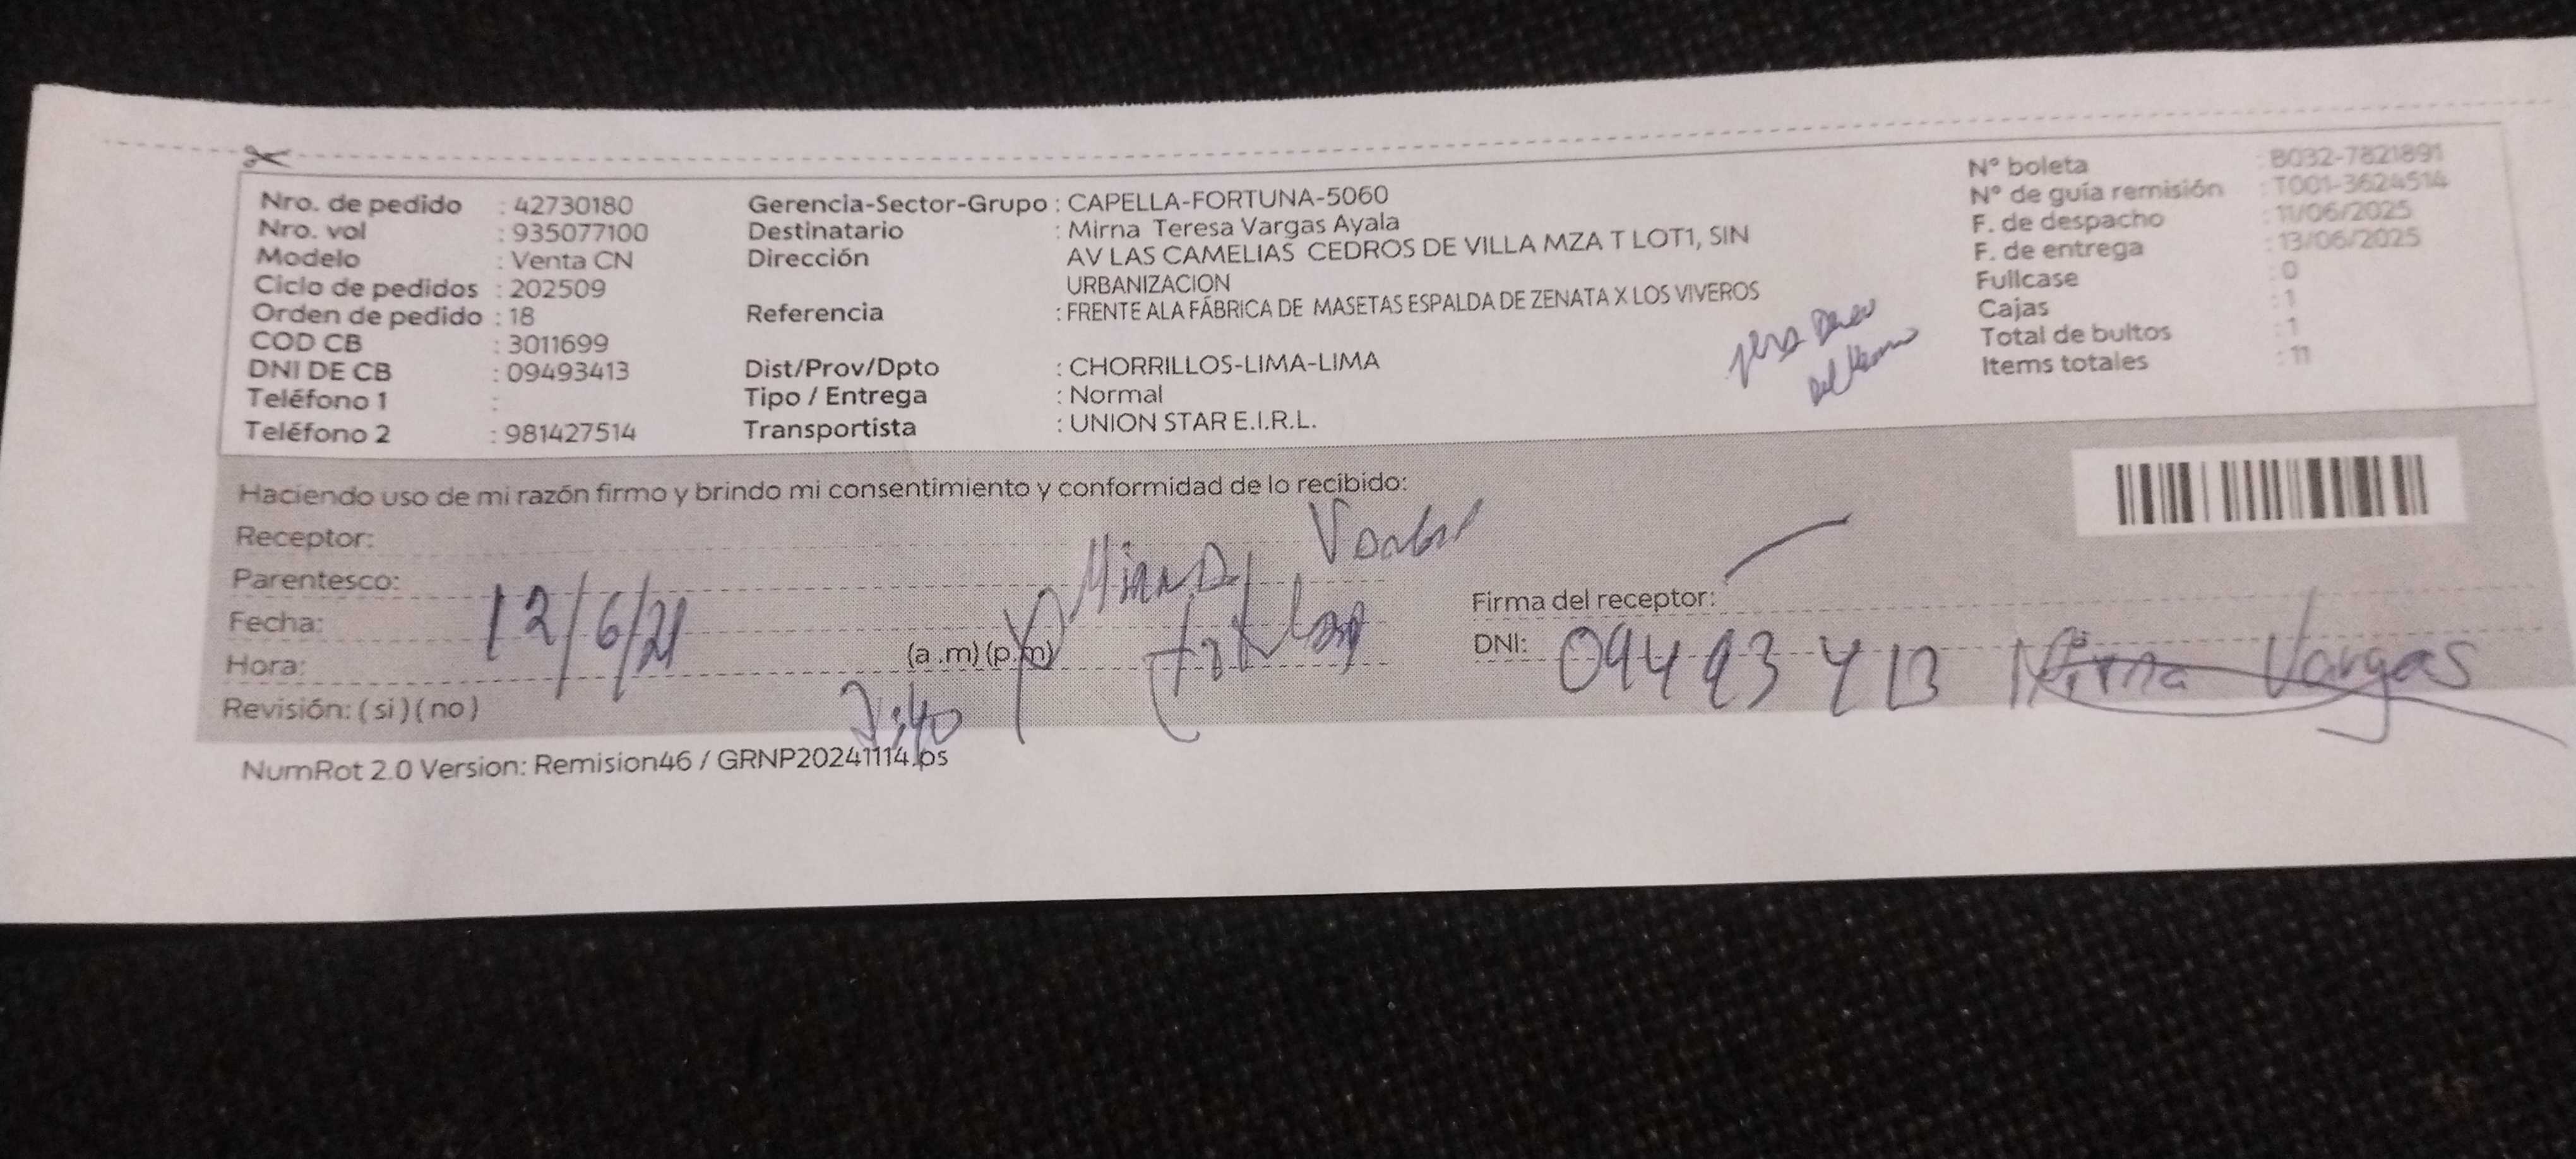 Nro. de pedido : 42730180 Gerencia-Sector-Grupo : CAPELLA-FORTUNA-5060 N° boleta : B032-7821891
Nro. vol : 935077100 Destinatario : Mirna Teresa Vargas Ayala N° de guía remisión : T001-3624514
Modelo : Venta CN Dirección AV LAS CAMELIAS CEDROS DE VILLA MZA T LOT1, SIN F. de despacho : 11/06/2025
Ciclo de pedidos : 202509 URBANIZACION F. de entrega : 13/06/2025
Orden de pedido : 18 Referencia : FRENTE ALA FÁBRICA DE MASETAS ESPALDA DE ZENATA X LOS VIVEROS Fullcase : 0
COD CB : 3011699 Cajas : 1
DNI DE CB : 09493413 Dist/Prov/Dpto : CHORRILLOS-LIMA-LIMA Total de bultos : 1
Teléfono 1 : Tipo / Entrega : Normal Items totales : 11
Teléfono 2 : 981427514 Transportista : UNION STAR E.I.R.L.
Haciendo uso de mi razón firmo y brindo mi consentimiento y conformidad de lo recibido:
Receptor:
Mirna
Parentesco:
Fecha: 12/6/21 Firma del receptor:
Hora: (a .m) (p.m) DNI: 09493413 Mirna Vargas
Revisión: ( si ) ( no )
NumRot 2.0 Version: Remision46 / GRNP20241114.ps